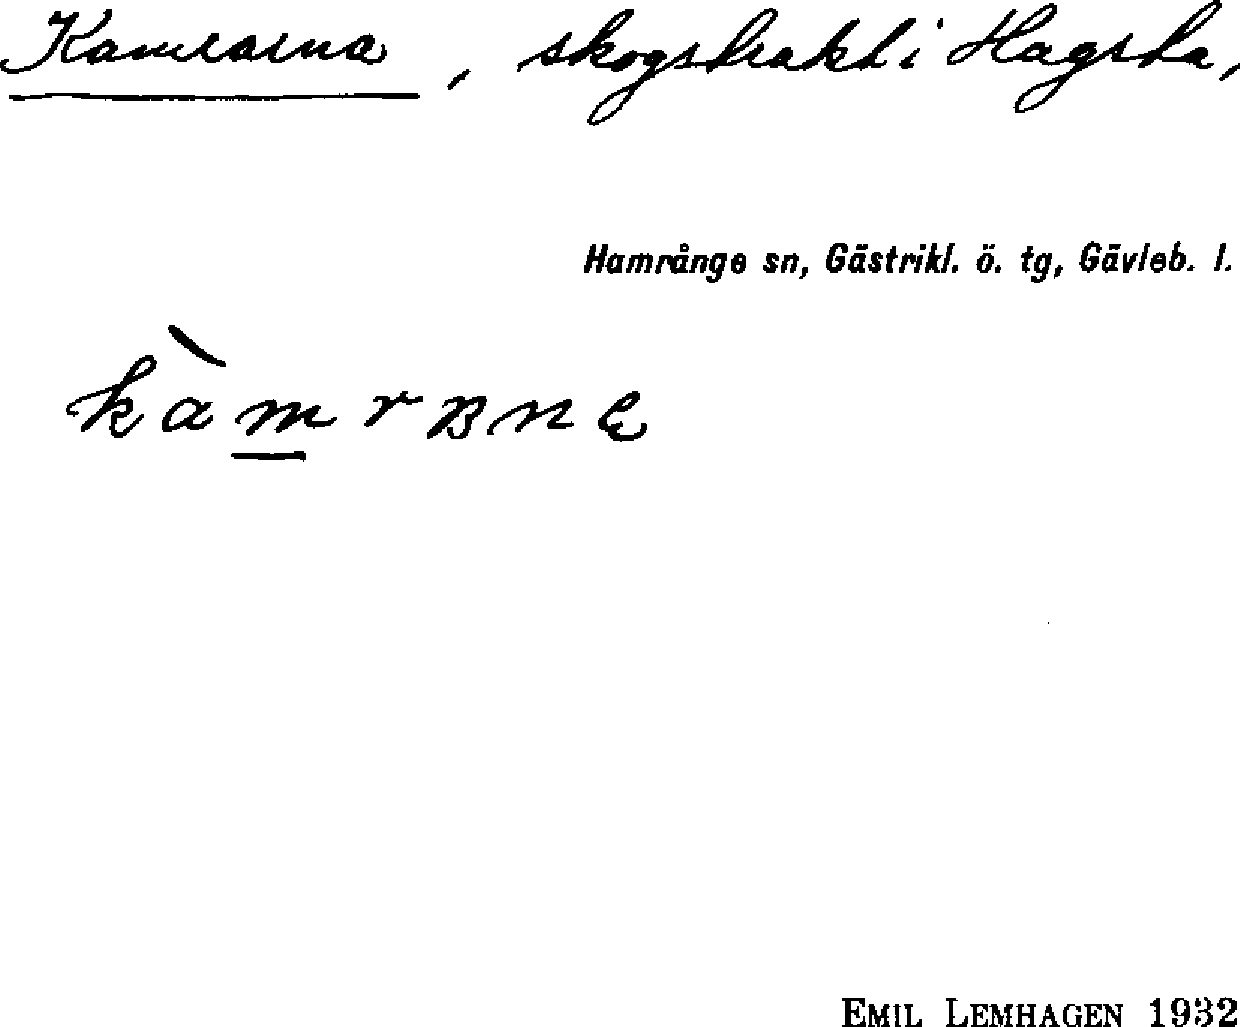 Kamrarna, skogstrakt i Hagsta,
Hamrånge sn, Gästrikl. ö. tg, Gävleb. l.
EMIL LEMHAGEN 1932